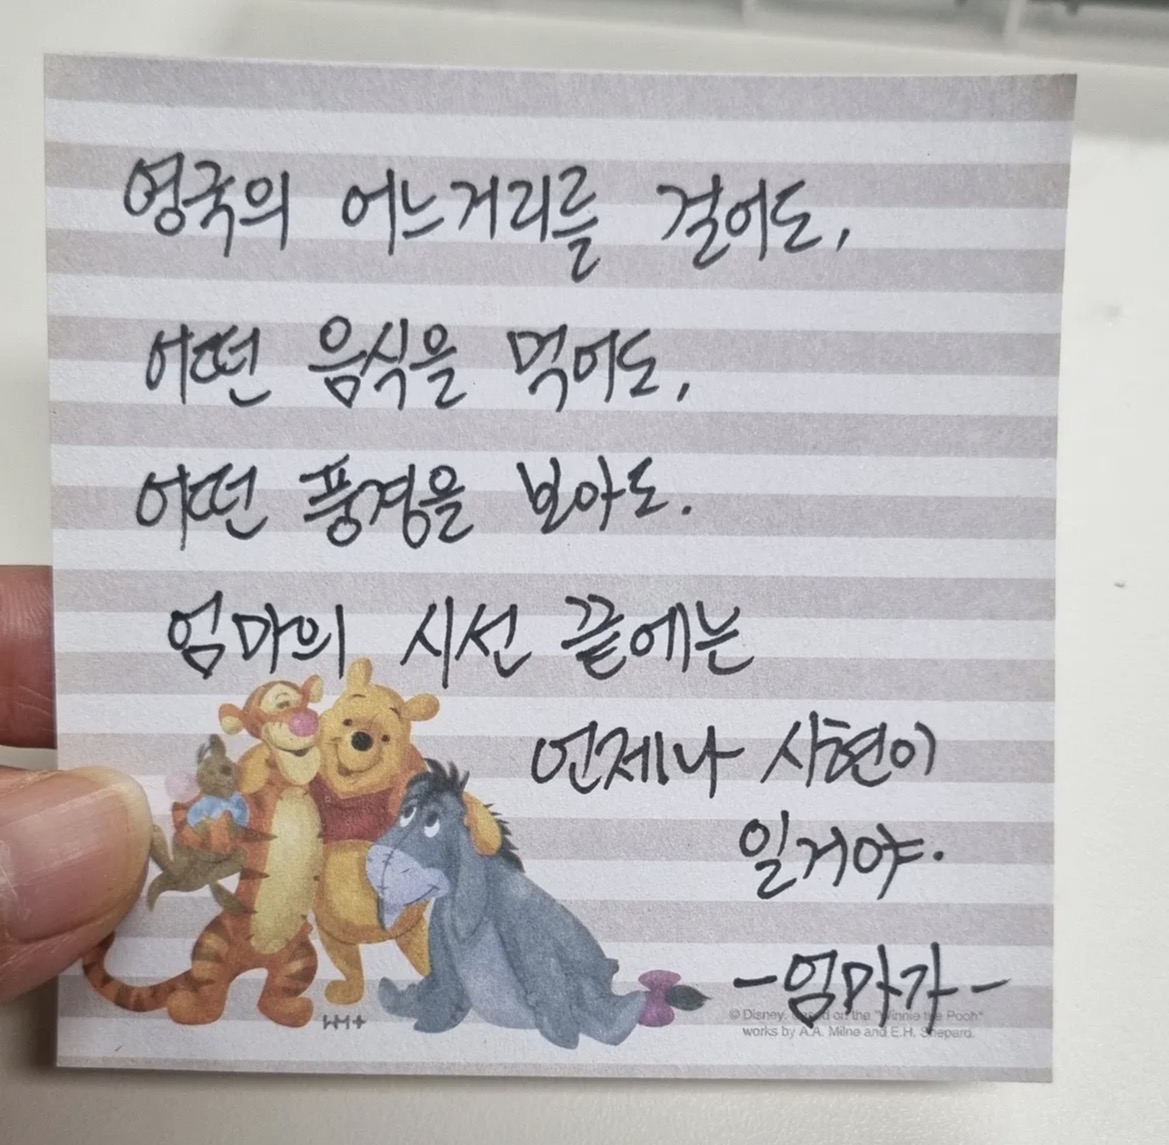 영국의 어느거리를 걸어도,
어떤 음식을 먹어도,
어떤 풍경을 보아도.
엄마의 시선 끝에는
언제나 사현이
일거야.
-엄마가-
© Disney. Based on the "Winnie the Pooh"
works by A.A. Milne and E.H. Shepard.